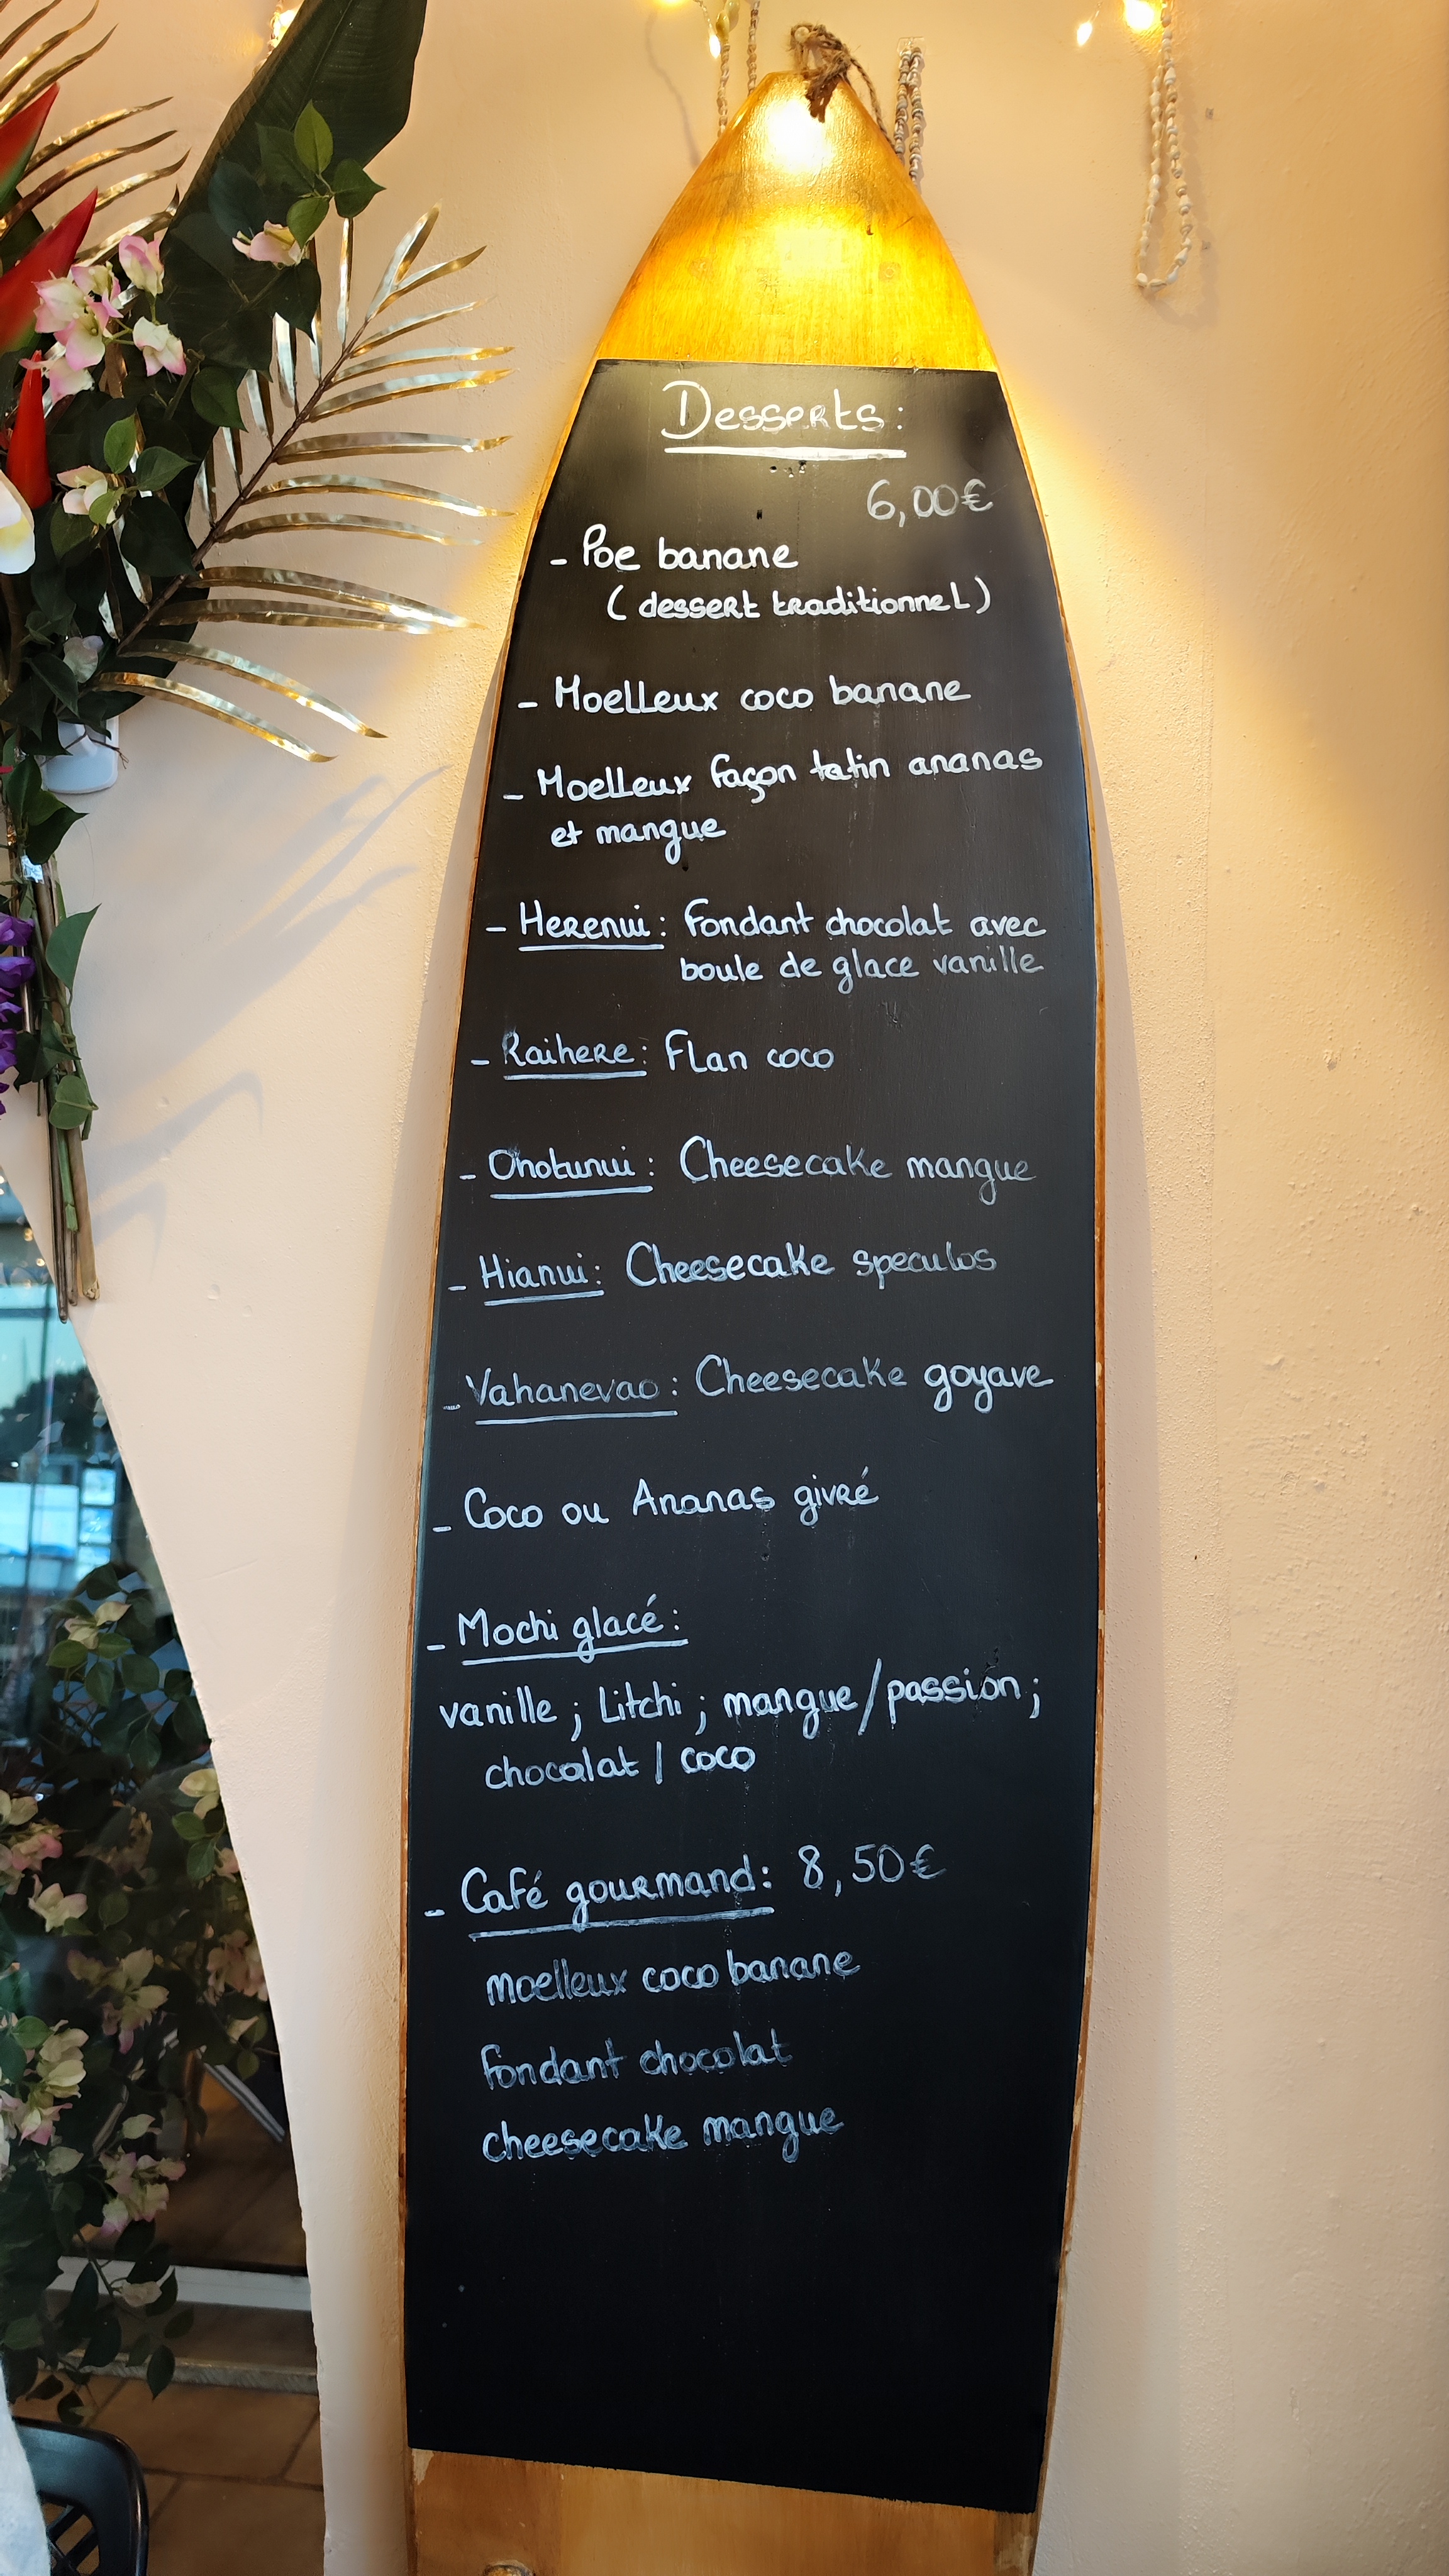 Desserts:
6,00€
- Poe banane
(dessert traditionnel)
- Moelleux coco banane
- Moelleux façon tatin ananas
et mangue
- Herenui: Fondant chocolat avec
boule de glace vanille
- Raihere: Flan coco
- Ohotunui: Cheesecake mangue
- Hianui: Cheesecake speculos
- Vahanevao: Cheesecake goyave
- Coco ou Ananas givré
- Mochi glacé:
vanille ; Litchi ; mangue/passion ;
chocolat / coco
- Café gourmand: 8,50€
moelleux coco banane
fondant chocolat
cheesecake mangue